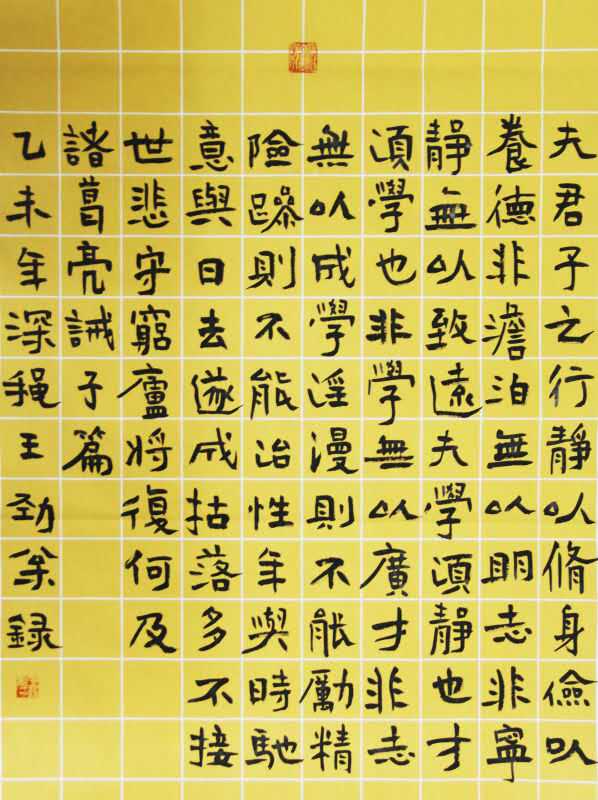 夫君子之行靜以脩身儉以
養德非澹泊無以明志非寧
靜無以致遠夫學須靜也才
須學也非學無以廣才非志
無以成學淫漫則不能勵精
險躁則不能治性年與時馳
意與日去遂成枯落多不接
世悲守窮廬將復何及
諸葛亮誡子篇
乙未年深穐王勁録